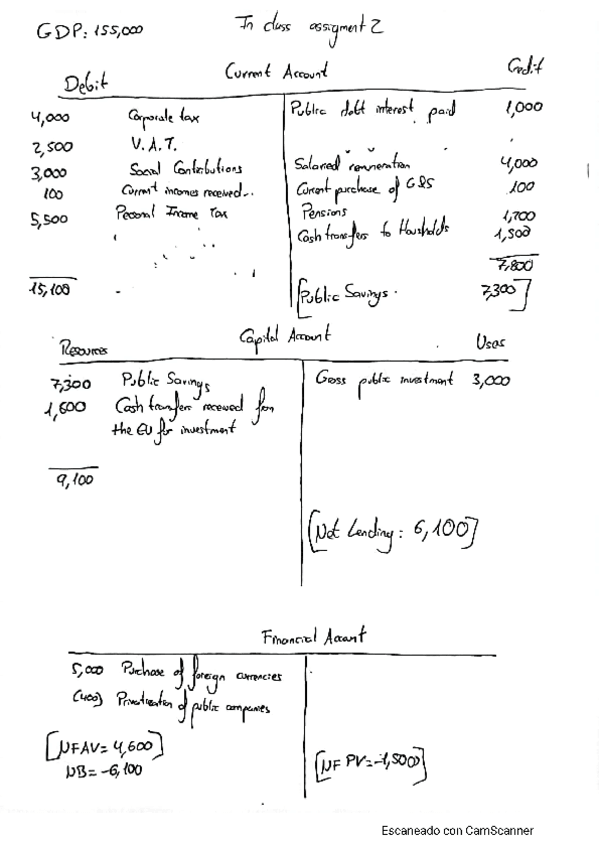 GDP: 155,000
In class assigment 2
Current Account
Debit
Credit
4,000 Corporate tax
Public debt interest paid 1,000
2,500 V.A.T.
3,000 Social Contributions
Salaried remuneration 4,000
100 Current incomes received..
Current purchase of G&S 100
5,500 Personal Income Tax
Pensions 1,700
Cash transfers to Housholds
7,800
15,100
[Public Savings. 7,300]
Capital Account
Resources
Uses
7,300 Public Savings
Gross public investment 3,000
Cash transfers received from
the EU for investment
9,100
[Net Lending: 6,100]
Financial Account
5,000 Purchase of foreign currencies
(400) Privatization of public companies
[NFAV= 4,600]
NB= -6,100
[NF PV= -1,500]
Escaneado con CamScanner